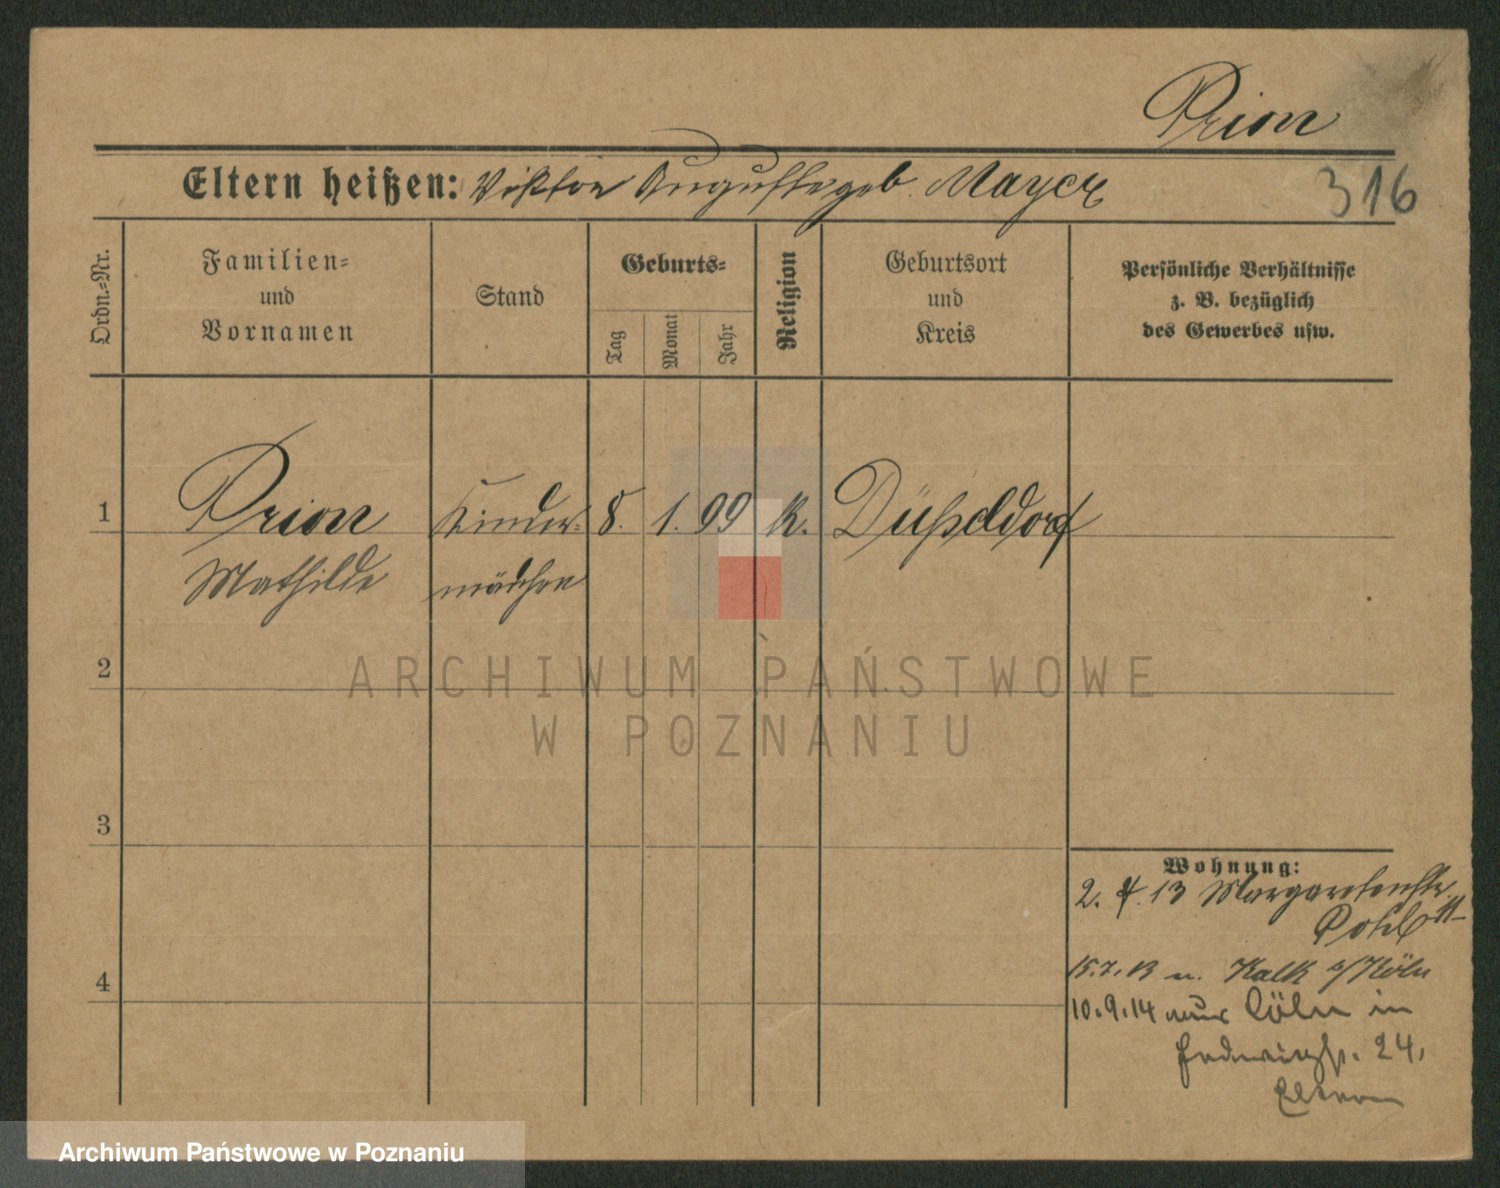 Prion
Eltern heißen: Viktor Auguste geb. Mayer
316
Ordn.-Nr.
Familien-
und
Vornamen
Stand
Geburts-
Tag
Monat
Jahr
Religion
Geburtsort
und
Kreis
Persönliche Verhältnisse
z. B. bezüglich
des Gewerbes usw.
1 Prion Kinder- 8. 1. 99 K. Düsseldorf
Mathilde mädchen
2
ARCHIWUM PAŃSTWOWE
W POZNANIU
3
Wohnung:
2. 4. 13 Margaretenstr.
Pohl
4
15.7.13 n. Kalk b/Köln
10.9.14 aus Cöln in
Hedwigstr. 24,
Eltern
Archiwum Państwowe w Poznaniu